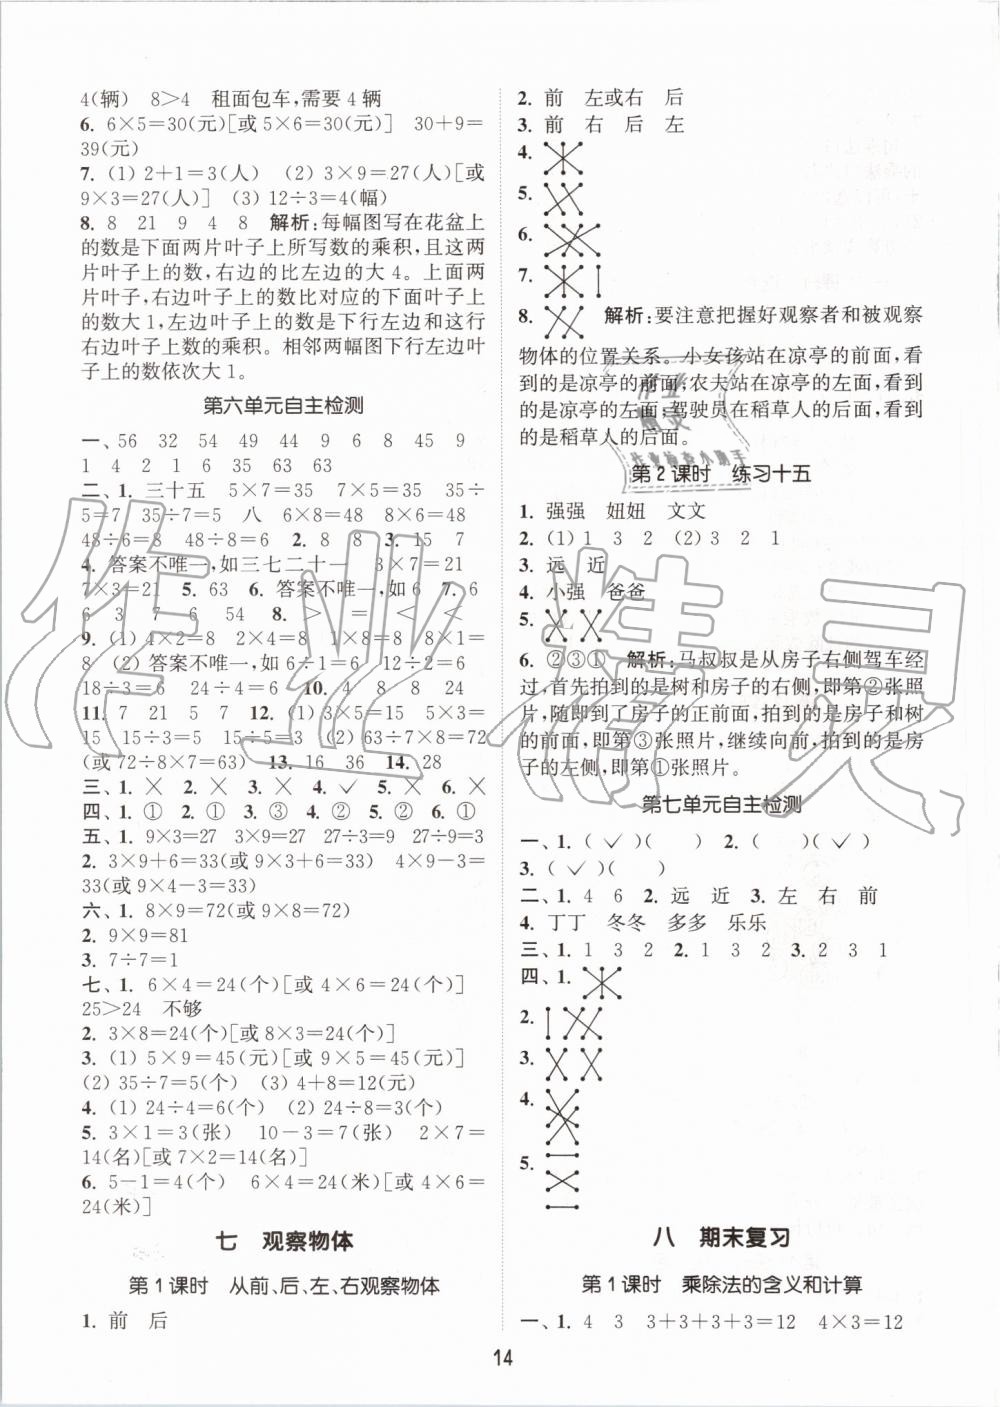 4(辆)　8＞4　租面包车,需要 4 辆
6. 6×5=30(元)[或 5×6=30(元)]　30+9=
39(元)
7. (1) 2+1=3(人)　(2) 3×9=27(人)[或
9×3=27(人)]　(3) 12÷3=4(幅)
8. 8　21　9　4　8　解析:每幅图写在花盆上
的数是下面两片叶子上所写数的乘积,且这两
片叶子上的数,右边的比左边的大 4。上面两
片叶子,右边叶子上的数比对应的下面叶子上
的数大 1,左边叶子上的数是下行左边和这行
右边叶子上的数的乘积。相邻两幅图下行左边叶
子上的数依次大 1。
第六单元自主检测
一、56　32　54　49　44　9　6　8　45　9
1　4　2　21　4　35　63　63
二、1. 三十五　5×7=35　7×5=35　35÷
5=7　35÷7=5　八　6×8=48　8×6=48
48÷6=8　48÷8=6　2. 8　8　3. 15　7
4. 答案不唯一,如三七二十一　3×7=21
7×3=21　5. 63　6. 答案不唯一　7. 6
6　3　7　6　54　8. ＞　=　＜　＜
9. (1) 4×2=8　2×4=8　1×8=8　8×1=
8　(2) 答案不唯一,如 6÷1=6　12÷2=6
18÷3=6　24÷4=6　10. 4　8　8　24
11. 7　21　5　7　12. (1) 3×5=15　5×3=
15　15÷3=5　15÷5=3　(2) 63÷7+8=72
(或 72－63÷7=8)　13. 16　36　14. 28
三、1. ×　2. ×　3. ×　4. ✓　5. ×　6. ×
四、1. ①　2. ①　3. ③　4. ②　5. ②　6. ①
五、1. 9×3=27　3×9=27　27÷3=9　27÷9=3
2. 3×9+6=33(或 9×3+6=33)　4×9－3=
33(或 9×4－3=33)
六、1. 8×9=72(或 9×8=72)
2. 9×9=81
3. 7÷7=1
七、1. 6×4=24(个)[或 4×6=24(个)]
25＞24　不够
2. 3×8=24(个)[或 8×3=24(个)]
3. (1) 5×9=45(元)[或 9×5=45(元)]
(2) 35÷7=5(个)　(3) 4+8=12(元)
4. (1) 24÷4=6(个)　(2) 24÷8=3(个)
5. 3×1=3(张)　10－3=7(张)　2×7=
14(名)[或 7×2=14(名)]
6. 5－1=4(个)　6×4=24(米)[或 4×6=
24(米)]
七　观察物体
第 1 课时　从前、后、左、右观察物体
1. 前　后
2. 前　左或右　后
3. 前　右　后　左
4.
5.
6.
7.
8.　解析:要注意把握好观察者和被观察
物体的位置关系。小女孩站在凉亭的前面,看
到的是凉亭的前面;农夫站在凉亭的左面,看到
的是凉亭的左面;驾驶员在稻草人的后面,看到
的是稻草人的后面。
第 2 课时　练习十五
1. 强强　妞妞　文文
2. (1) 1　3　2　(2) 3　2　1
3. 远　近
4. 小强　爸爸
5.
6. ②③①　解析:马叔叔是从房子右侧驾车经
过,首先拍到的是树和房子的右侧,即第②张照
片,随即到了房子的正前面,拍到的是房子和树
的前面,即第③张照片,继续向前,拍到的是房
子的左侧,即第①张照片。
第七单元自主检测
一、1. ( ✓ )(　　)　2. (　　)( ✓ )
3. ( ✓ )(　　)
二、1. 4　6　2. 远　近　3. 左　右　前
4. 丁丁　冬冬　多多　乐乐
三、1. 1　3　2　2. 1　3　2　3. 2　3　1
四、1.
2.
3.
4.
5.
八　期末复习
第 1 课时　乘除法的含义和计算
一、1. 4　3　3+3+3+3=12　4×3=12
14
作业精灵